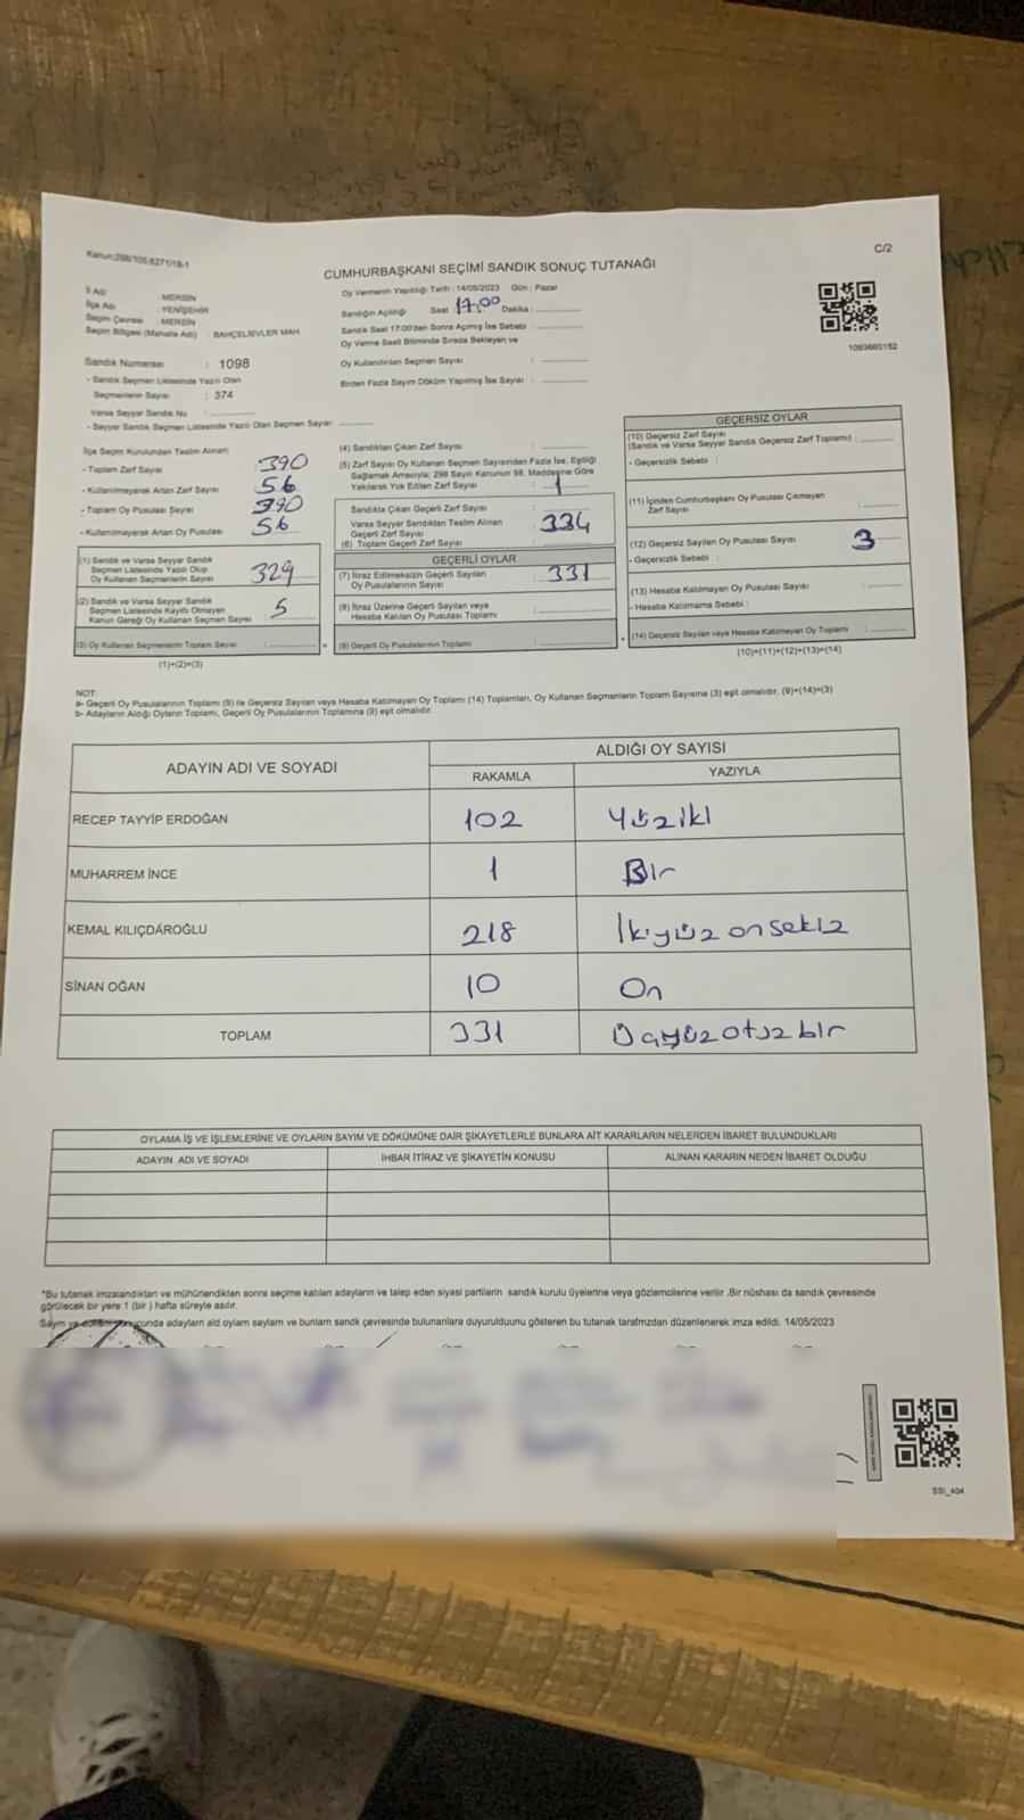 Kanun:298/105,6271/18-1
C/2
CUMHURBAŞKANI SEÇİMİ SANDIK SONUÇ TUTANAĞI
İl Adı : MERSİN
İlçe Adı : YENİŞEHİR
Seçim Çevresi : MERSİN
Seçim Bölgesi (Mahalle Adı) BAHÇELİEVLER MAH.
Sandık Numarası : 1098
- Sandık Seçmen Listesinde Yazılı Olan
Seçmenlerin Sayısı : 374
Varsa Seyyar Sandık No :
- Seyyar Sandık Seçmen Listesinde Yazılı Olan Seçmen Sayısı
Oy Vermenin Yapıldığı Tarih : 14/05/2023 Gün : Pazar
Sandığın Açıldığı Saat 17,00 Dakika :
Sandık Saat 17:00'den Sonra Açılmış İse Sebebi :
Oy Verme Saati Bitiminde Sırada Bekleyen ve
Oy Kullandırılan Seçmen Sayısı :
Birden Fazla Sayım Döküm Yapılmış İse Sayısı :
1093665152
İlçe Seçim Kurulundan Teslim Alınan;
- Toplam Zarf Sayısı 390
- Kullanılmayarak Artan Zarf Sayısı 56
- Toplam Oy Pusulası Sayısı 390
- Kullanılmayarak Artan Oy Pusulası 56
(1) Sandık ve Varsa Seyyar Sandık
Seçmen Listesinde Yazılı Olup
Oy Kullanan Seçmenlerin Sayısı 329
(2) Sandık ve Varsa Seyyar Sandık
Seçmen Listesinde Kayıtlı Olmayan
Kanun Gereği Oy Kullanan Seçmen Sayısı 5
(3) Oy Kullanan Seçmenlerin Toplam Sayısı
(1)+(2)=(3)
(4) Sandıktan Çıkan Zarf Sayısı :
(5) Zarf Sayısı Oy Kullanan Seçmen Sayısından Fazla İse, Eşitliği
Sağlamak Amacıyla; 298 Sayılı Kanunun 98. Maddesine Göre
Yakılarak Yok Edilen Zarf Sayısı : 1
Sandıkta Çıkan Geçerli Zarf Sayısı
Varsa Seyyar Sandıktan Teslim Alınan
Geçerli Zarf Sayısı
(6) Toplam Geçerli Zarf Sayısı : 334
GEÇERLİ OYLAR
(7) İtiraz Edilmeksizin Geçerli Sayılan
Oy Pusulalarının Sayısı : 331
(8) İtiraz Üzerine Geçerli Sayılan veya
Hesaba Katılan Oy Pusulası Toplamı :
(9) Geçerli Oy Pusulalarının Toplamı :
GEÇERSİZ OYLAR
(10) Geçersiz Zarf Sayısı
(Sandık ve Varsa Seyyar Sandık Geçersiz Zarf Toplamı) :
- Geçersizlik Sebebi :
(11) İçinden Cumhurbaşkanı Oy Pusulası Çıkmayan
Zarf Sayısı :
(12) Geçersiz Sayılan Oy Pusulası Sayısı : 3
- Geçersizlik Sebebi :
(13) Hesaba Katılmayan Oy Pusulası Sayısı
- Hesaba Katılmama Sebebi :
(14) Geçersiz Sayılan veya Hesaba Katılmayan Oy Toplamı :
(10)+(11)+(12)+(13)=(14)
NOT:
a- Geçerli Oy Pusulalarının Toplamı (9) ile Geçersiz Sayılan veya Hesaba Katılmayan Oy Toplamı (14) Toplamları, Oy Kullanan Seçmenlerin Toplam Sayısına (3) eşit olmalıdır. (9)+(14)=(3)
b- Adayların Aldığı Oyların Toplamı, Geçerli Oy Pusulalarının Toplamına (9) eşit olmalıdır.
ADAYIN ADI VE SOYADI ALDIĞI OY SAYISI
RAKAMLA YAZIYLA
RECEP TAYYİP ERDOĞAN 102 Yüziki
MUHARREM İNCE 1 Bir
KEMAL KILIÇDAROĞLU 218 İkiyüz onsekiz
SİNAN OĞAN 10 On
TOPLAM 331 Üçyüzotuzbir
OYLAMA İŞ VE İŞLEMLERİNE VE OYLARIN SAYIM VE DÖKÜMÜNE DAİR ŞİKAYETLERLE BUNLARA AİT KARARLARIN NELERDEN İBARET BULUNDUKLARI
ADAYIN ADI VE SOYADI İHBAR İTİRAZ VE ŞİKAYETİN KONUSU ALINAN KARARIN NEDEN İBARET OLDUĞU
*Bu tutanak imzalandıktan ve mühürlendikten sonra seçime katılan adayların ve talep eden siyasi partilerin sandık kurulu üyelerine veya gözlemcilerine verilir .Bir nüshası da sandık çevresinde
görülecek bir yere 1 (bir ) hafta süreyle asılır.
adayların ald oyların sayların ve bunların sandk çevresinde bulunanlara duyurulduunu gösteren bu tutanak tarafmzdan düzenlenerek imza edildi. 14/05/2023
SSI_404